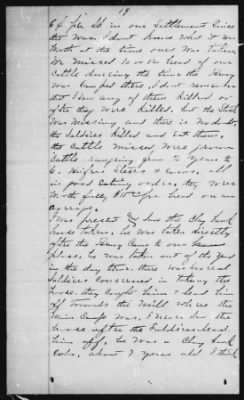 19
6¢ per lb in one Settlement Since
the War. I dont know what it was
Worth at the time ours was taken
We missed 10 or head of our
Cattle during the time the Army
was Camped there, I dont remember
that I saw any of them killed or
after they were killed, but the Stock
was Missing and there is no doubt
the Soldiers killed and eat them,
the Cattle missed were grown
Cattle ranging from 2 years to
6. Heifers Steers & Cows, all
in good Eating order. they were
Worth fully per head on an
average.
I was present & saw the Clay bank
horse taken, he was taken directly
after the Army Came to our
place, he was taken out of the yard
in the day time. there was several
Soldiers Concerned in taking the
horse, they caught him & lead him
off towards the Mill where the
Main Camp was, I never saw the
horse after the Soldiers lead
him off, he was a Clay bank
Color. about 7 years old I think